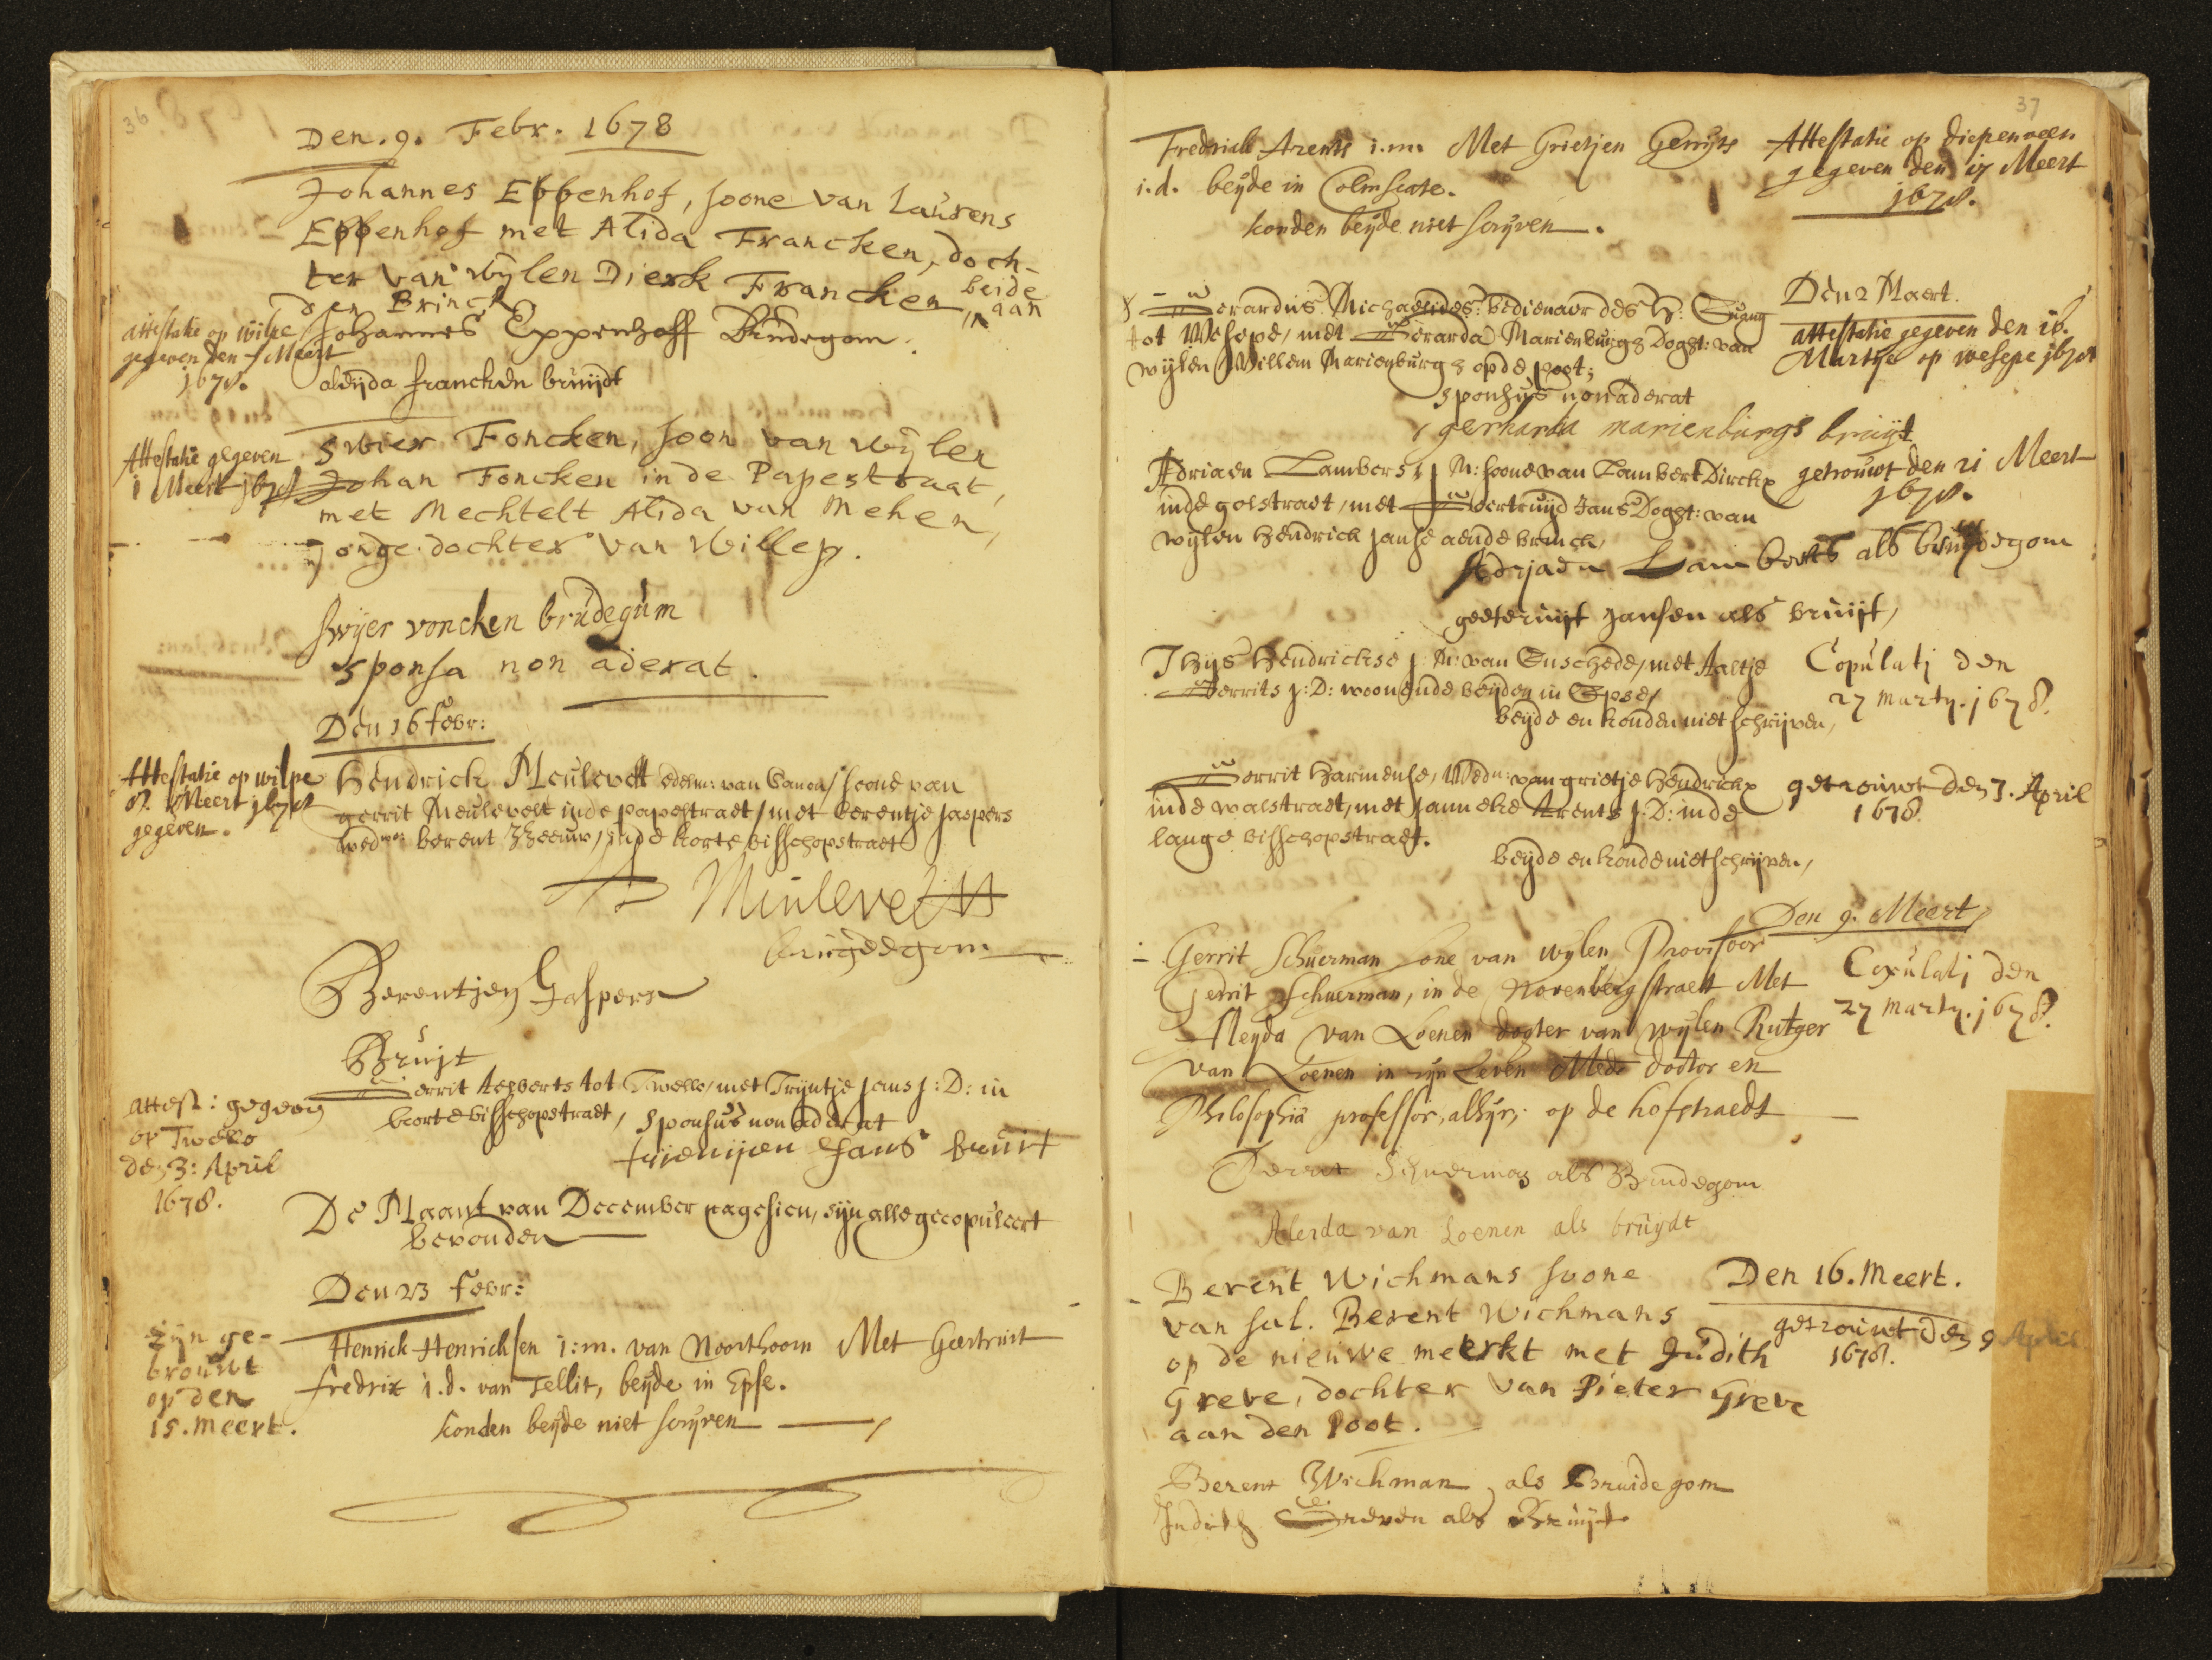 36
Den. 9. Febr. 1678
Johannes Eppenhof, soone van Laurens
Eppenhof met Alida Francken, doch-
ter van wylen Dierk Francken, beide aan
den Brinck
attestatie op wilpe
gegeven den Meert
1678.
Johannes Eppenhoff Brudegom.
aleijda francken bruijdt
Attestatie gegeven
1 Meert 1678
Swier Foncken, soon van wylen
Johan Foncken in de Papestraat,
met Mechtelt Alida van Mehen,
jonge dochter van Willep.
Swijer voncken brudegum
sponsa non aderat.
Den 16 febr:
Attestatie op wilpe
8. Meert 1678
gegeven.
Hendrick Meulevelt van soone van
gerrit Meulevelt inde papestraet / met berentje Jaspers
wedwe: berent Zeeuw, inde korte bisschopstraet
Meulevelt
brugdegom
Berentjen Jaspers
Bruijt
Attest: gegeven
op Twello
den 3: April
1678.
Gerrit Aepberts tot Twello, met Trijntje Jans J: D: in
korte bisschopstraet, sponsus non aderat
Jans bruit
De Maant van December nagesien, sijn alle gecopuleert
bevonden
Den 23 febr:
zijn ge-
trouwt
op den
15. meert.
Henrick Henricksen i:m. van Noorthoorn Met Geertruit
fredrix i.d. van Tellit, beyde in Epse.
konden beyde niet scryven
37
Fredrick Arents i.m. Met Grietjen Gerryts
i.d. beyde in Colmscate.
konden beyde niet scryven.
Attestatie op diepenveen
gegeven den 17 Meert
1678.
Den 2 Maert.
Gerardus Michaelides: bedienaar des H: Euang
tot Wesepe, met Gerarda Marienburgs Doght: van
wylen Willem Marienburgs op de poot;
attestatie gegeven den 16.
Martye op wesepe 1678
sponsus non aderat
gerharda marienburgs bruijt
Adriaen Lambers, J M: soone van Lambert Dirckx
inde golstraet, met Geertruijd Jans Doght: van
wylen Hendrick Janse aende brinck,
getrouwt den 21 Meert
1678.
Adrjaen Lamberts als bruijdegom
geeteruijt Jansen als bruijt,
Thijs Hendrickse J. M: van Enschede, met Aaltje
Gerrits J: D: woonende beyden in Epse,
beyde en konden niet schrijven,
Copulatj den
27 marty. 1678.
Gerrit Harmense, Wedn: van grietje Hendrickx
inde walstraet, met Janneke Arents J: D: inde
lange bisschopstraet.
beyde en konde niet schrijven,
getrouwt den 7. April
1678.
Den 9. Meert
Gerrit Schuerman sone van wylen Provisoor
Gerrit Schuerman, in de Norenbergstraett Met
Aleyda van Loenen dogter van wylen Rutger
van Loenen in zyn Leven Med: doctor en
Philosophia professor, alhyr, op de hofstraedt
Copulatj den
27 marty. 1678.
Gerrit Schuerman als Brudegom
Aleida van Loenen als bruydt
Berent Wichmans soone
van sal. Berent Wichmans
op de nieuwe meerkt met Judith
Greve, dochter van Pieter Greve
aan den Poot.
Den 16. Meert.
getrouwt den 9 April
1678.
Berent Wichman als Bruidegom
Judith Greven als Bruijt